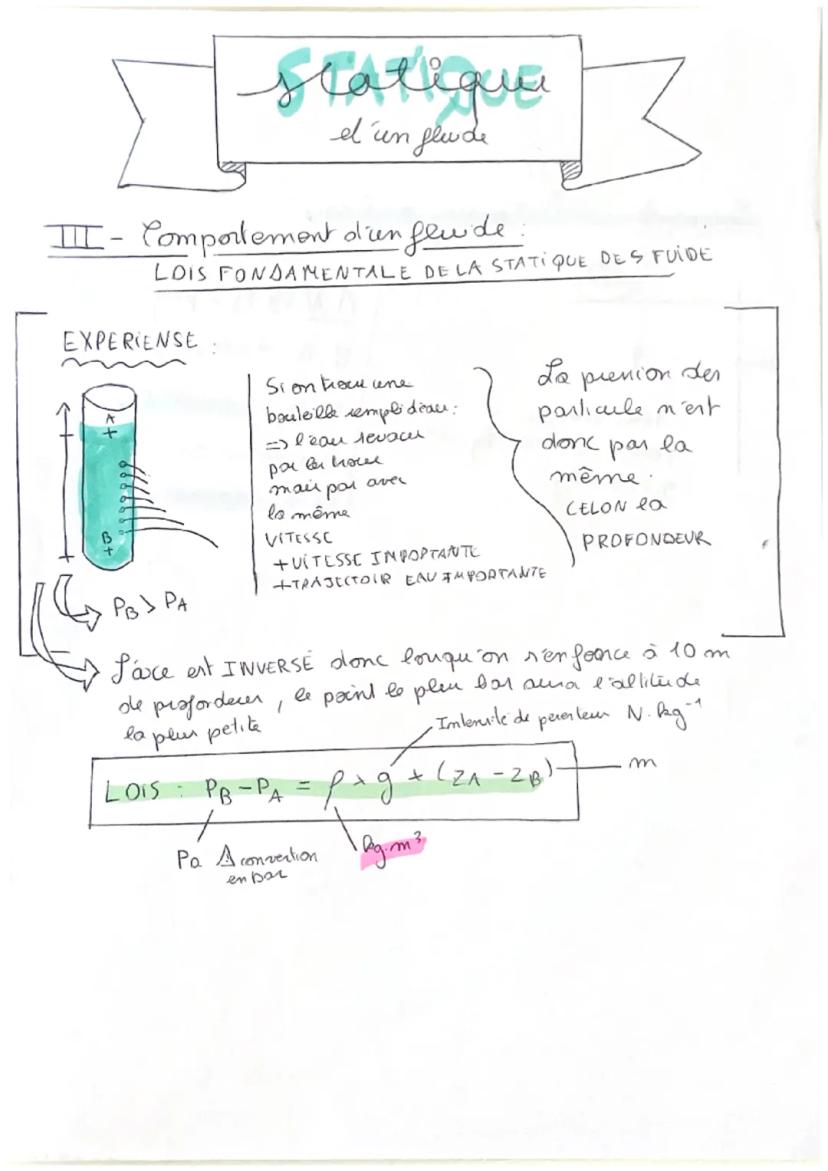 STATIQUE
statique
d'un fluide
III - Comportement d'un fluide :
LOIS FONDAMENTALE DE LA STATIQUE DES FUIDE
EXPERIENSE :
A
+
B
+
PB > PA
Si on troue une
bouteille rempli d'eau :
=> l'eau
par les troue
mais pas avec
la même
VITESSE
+ VITESSE IMPORTANTE
+ TRAJECTOIR EAU IMPORTANTE
La pression des
particule n'est
donc pas la
même.
CELON la
PROFONDEUR
l'axe est INVERSÉ donc lorsqu'on s'enfonce à 10 m
de profondeur, le point le plus bas aura l'altitude
la plus petite
Intensité de pesanteur N.kg⁻¹
LOIS : PB - PA = ρ x g * (ZA - ZB)
m
Pa ⚠ convertion
en bar
kg.m³